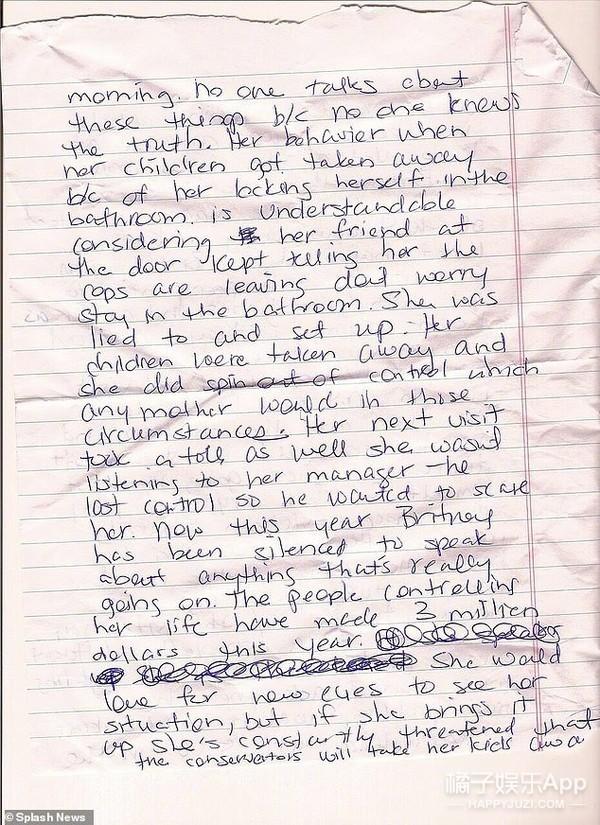 morning. no one talks about
these things b/c no one knows
the truth. Her behavior when
her children got taken away
b/c of her locking herself in the
bathroom. is understandable
considering her friend at
the door kept telling her the
cops are leaving dont worry
stay in the bathroom. She was
lied to and set up. Her
children were taken away and
she did spin out of control which
any mother would in those
circumstances. Her next visit
took a toll as well she wasnt
listening to her manager - he
lost control so he wanted to scare
her. Now this year Britney
has been silenced to speak
about anything thats really
going on. The people controlling
her life have made 3 million
dollars this year.
She would
love for new eyes to see her
situation, but if she brings it
up she's constantly threatened that
the conservators will take her kids awa
© Splash News
橘子娱乐App
HAPPYJUZI.COM